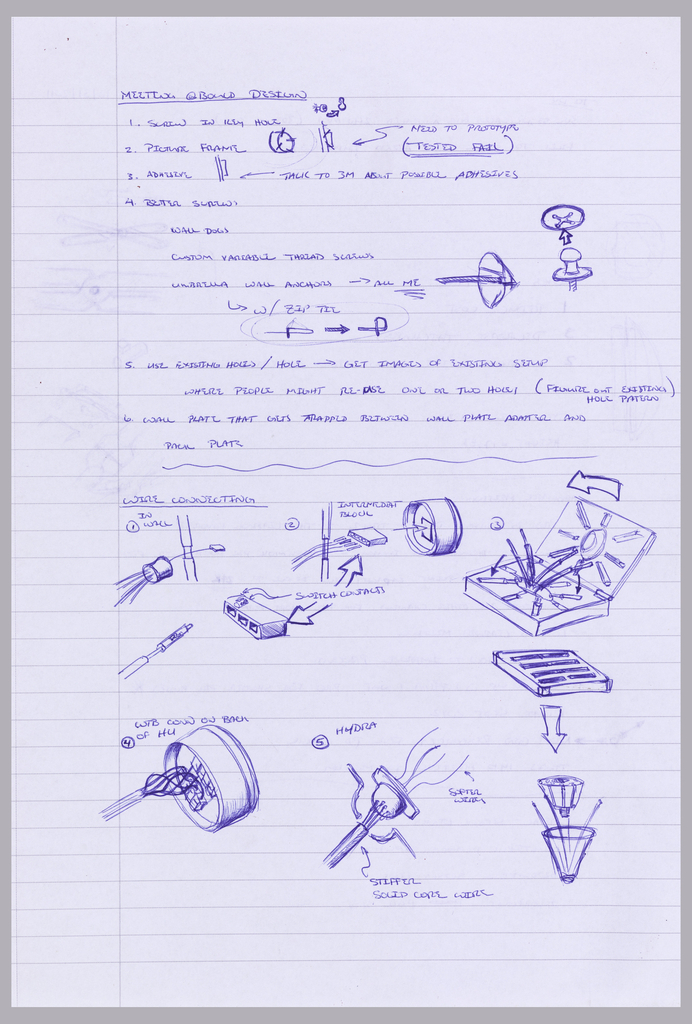 MEETING @BOARD DESIGN
1. SCREW IN KEY HOLE
2. PICTURE FRAME
NEED TO PROTOTYPE
(TESTED FAIL)
3. ADHESIVE
TALK TO 3M ABOUT POSSIBLE ADHESIVES
4. BETTER SCREWS
WALL DOGS
CUSTOM VARIABLE THREAD SCREWS
UMBRELLA WALL ANCHORS → ALL ME
↳ W/ ZIP TIE
5. USE EXISTING HOLES / HOLE → GET IMAGES OF EXISTING SETUP
WHERE PEOPLE MIGHT RE-USE ONE OR TWO HOLES (FIGURE OUT EXISTING
HOLE PATERN)
6. WALL PLATE THAT GETS TRAPPED BETWEEN WALL PLATE ADAPTER AND
BACK PLATE
WIRE CONNECTING
① IN
WALL
②
INTERMEDIAT
BLOCK
③
SWITCH CONTACTS
④ WTB CONN ON BACK
OF HU
⑤ HYDRA
SOFTER
WIRES
STIFFER
SOLID CORE WIRE